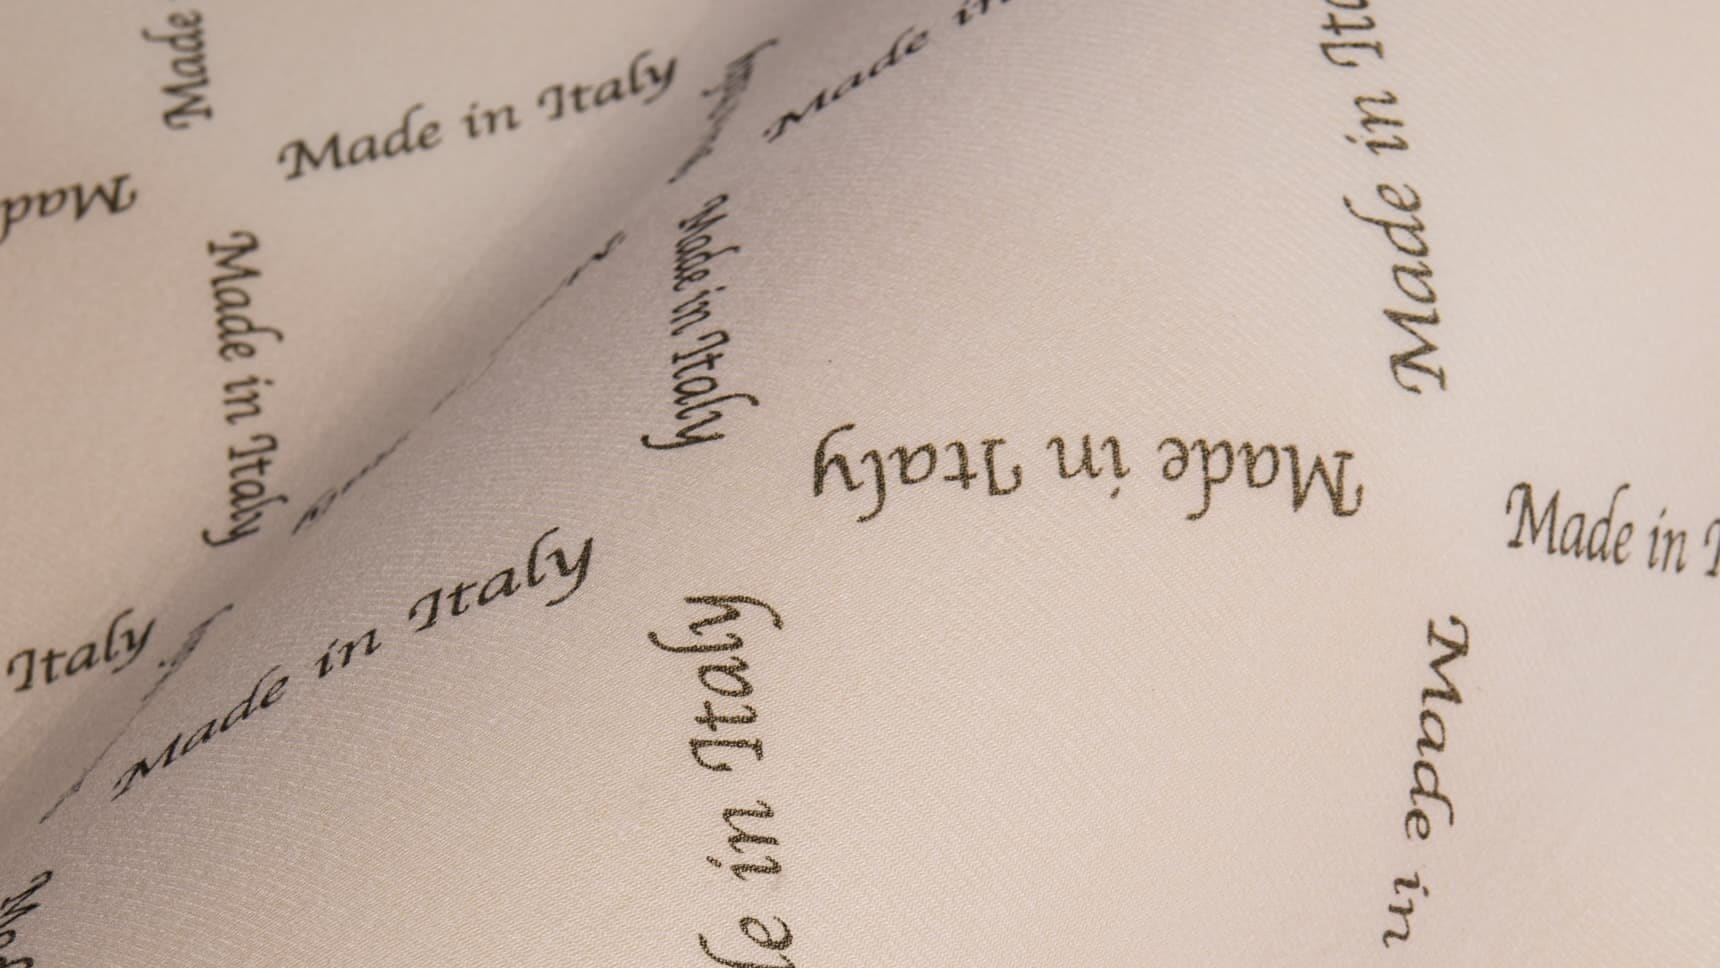 Made
Made in Italy
Made in
Made in It
Mad
Made in Italy
Made in Italy
Made in Italy
Made in I
Made in Italy
Italy
Made in Italy
Made in